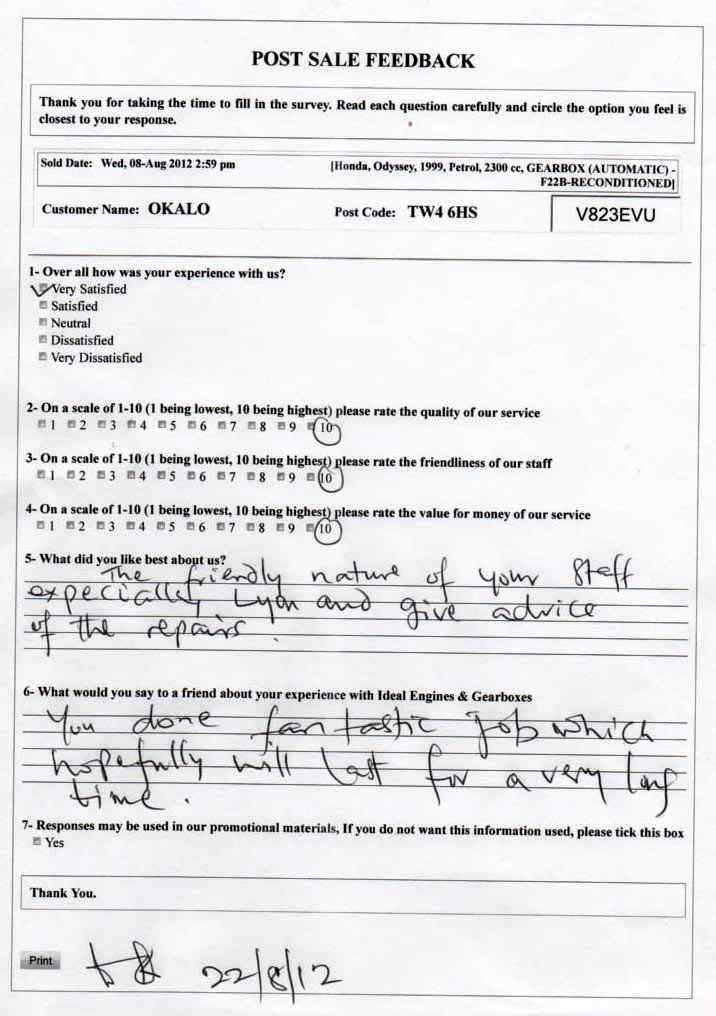 POST SALE FEEDBACK
Thank you for taking the time to fill in the survey. Read each question carefully and circle the option you feel is
closest to your response.
Sold Date: Wed, 08-Aug 2012 2:59 pm
[Honda, Odyssey, 1999, Petrol, 2300 cc, GEARBOX (AUTOMATIC) -
F22B-RECONDITIONED]
Customer Name: OKALO
Post Code: TW4 6HS
V823EVU
1- Over all how was your experience with us?
Very Satisfied
Satisfied
Neutral
Dissatisfied
Very Dissatisfied
2- On a scale of 1-10 (1 being lowest, 10 being highest) please rate the quality of our service
1 2 3 4 5 6 7 8 9 10
3- On a scale of 1-10 (1 being lowest, 10 being highest) please rate the friendliness of our staff
1 2 3 4 5 6 7 8 9 10
4- On a scale of 1-10 (1 being lowest, 10 being highest) please rate the value for money of our service
1 2 3 4 5 6 7 8 9 10
5- What did you like best about us?
The friendly nature of your staff
expecially Lyon and give advice
of the repairs.
6- What would you say to a friend about your experience with Ideal Engines & Gearboxes
You done fantastic job which
hopefully will last for a very long
time.
7- Responses may be used in our promotional materials, If you do not want this information used, please tick this box
Yes
Thank You.
Print
22/8/12